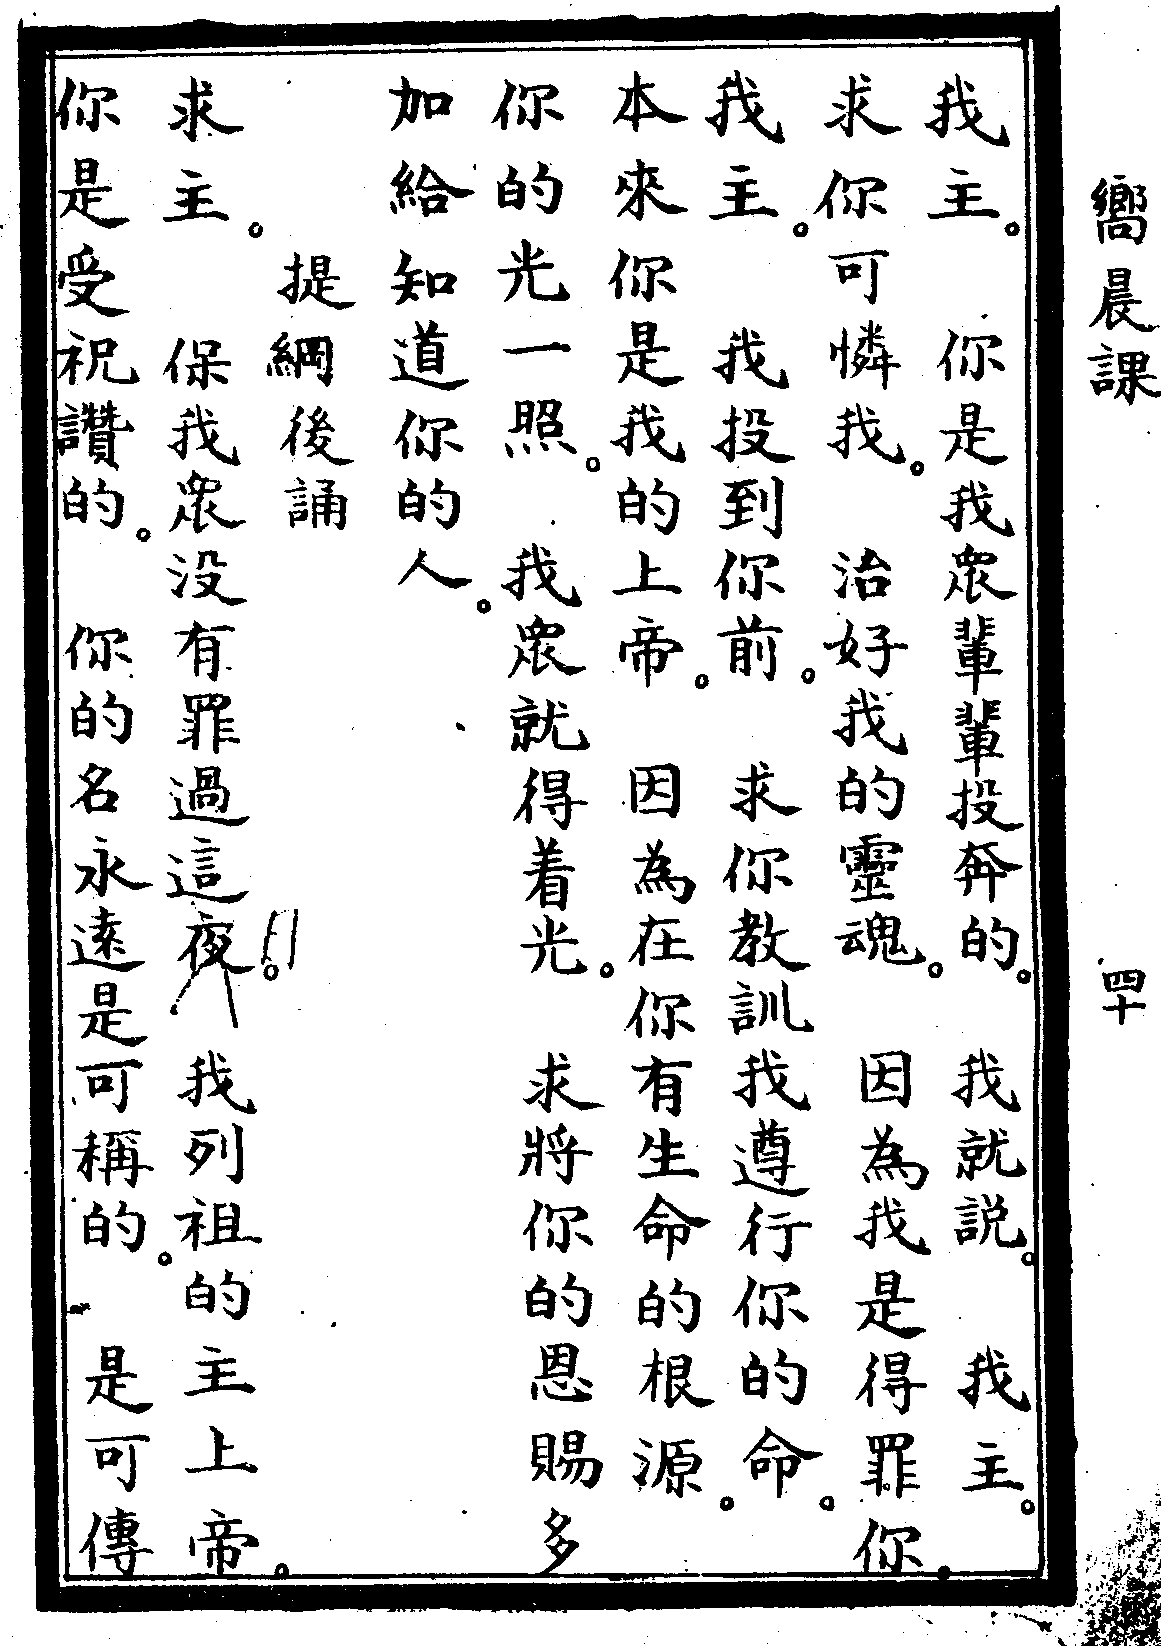 嚮晨課
四十
我主。 你是我衆輩輩投奔的。 我就説。 我主。
求你可憐我。 治好我的靈魂。 因為我是得罪你。
我主。 我投到你前。 求你教訓我遵行你的命。
本來你是我的上帝。 因為在你有生命的根源。
你的光一照。 我衆就得着光。 求將你的恩賜多
加給知道你的人。
提綱後誦
求主。 保我衆没有罪過這夜。 我列祖的主上帝。
你是受祝讚的。 你的名永遠是可稱的。 是可傳